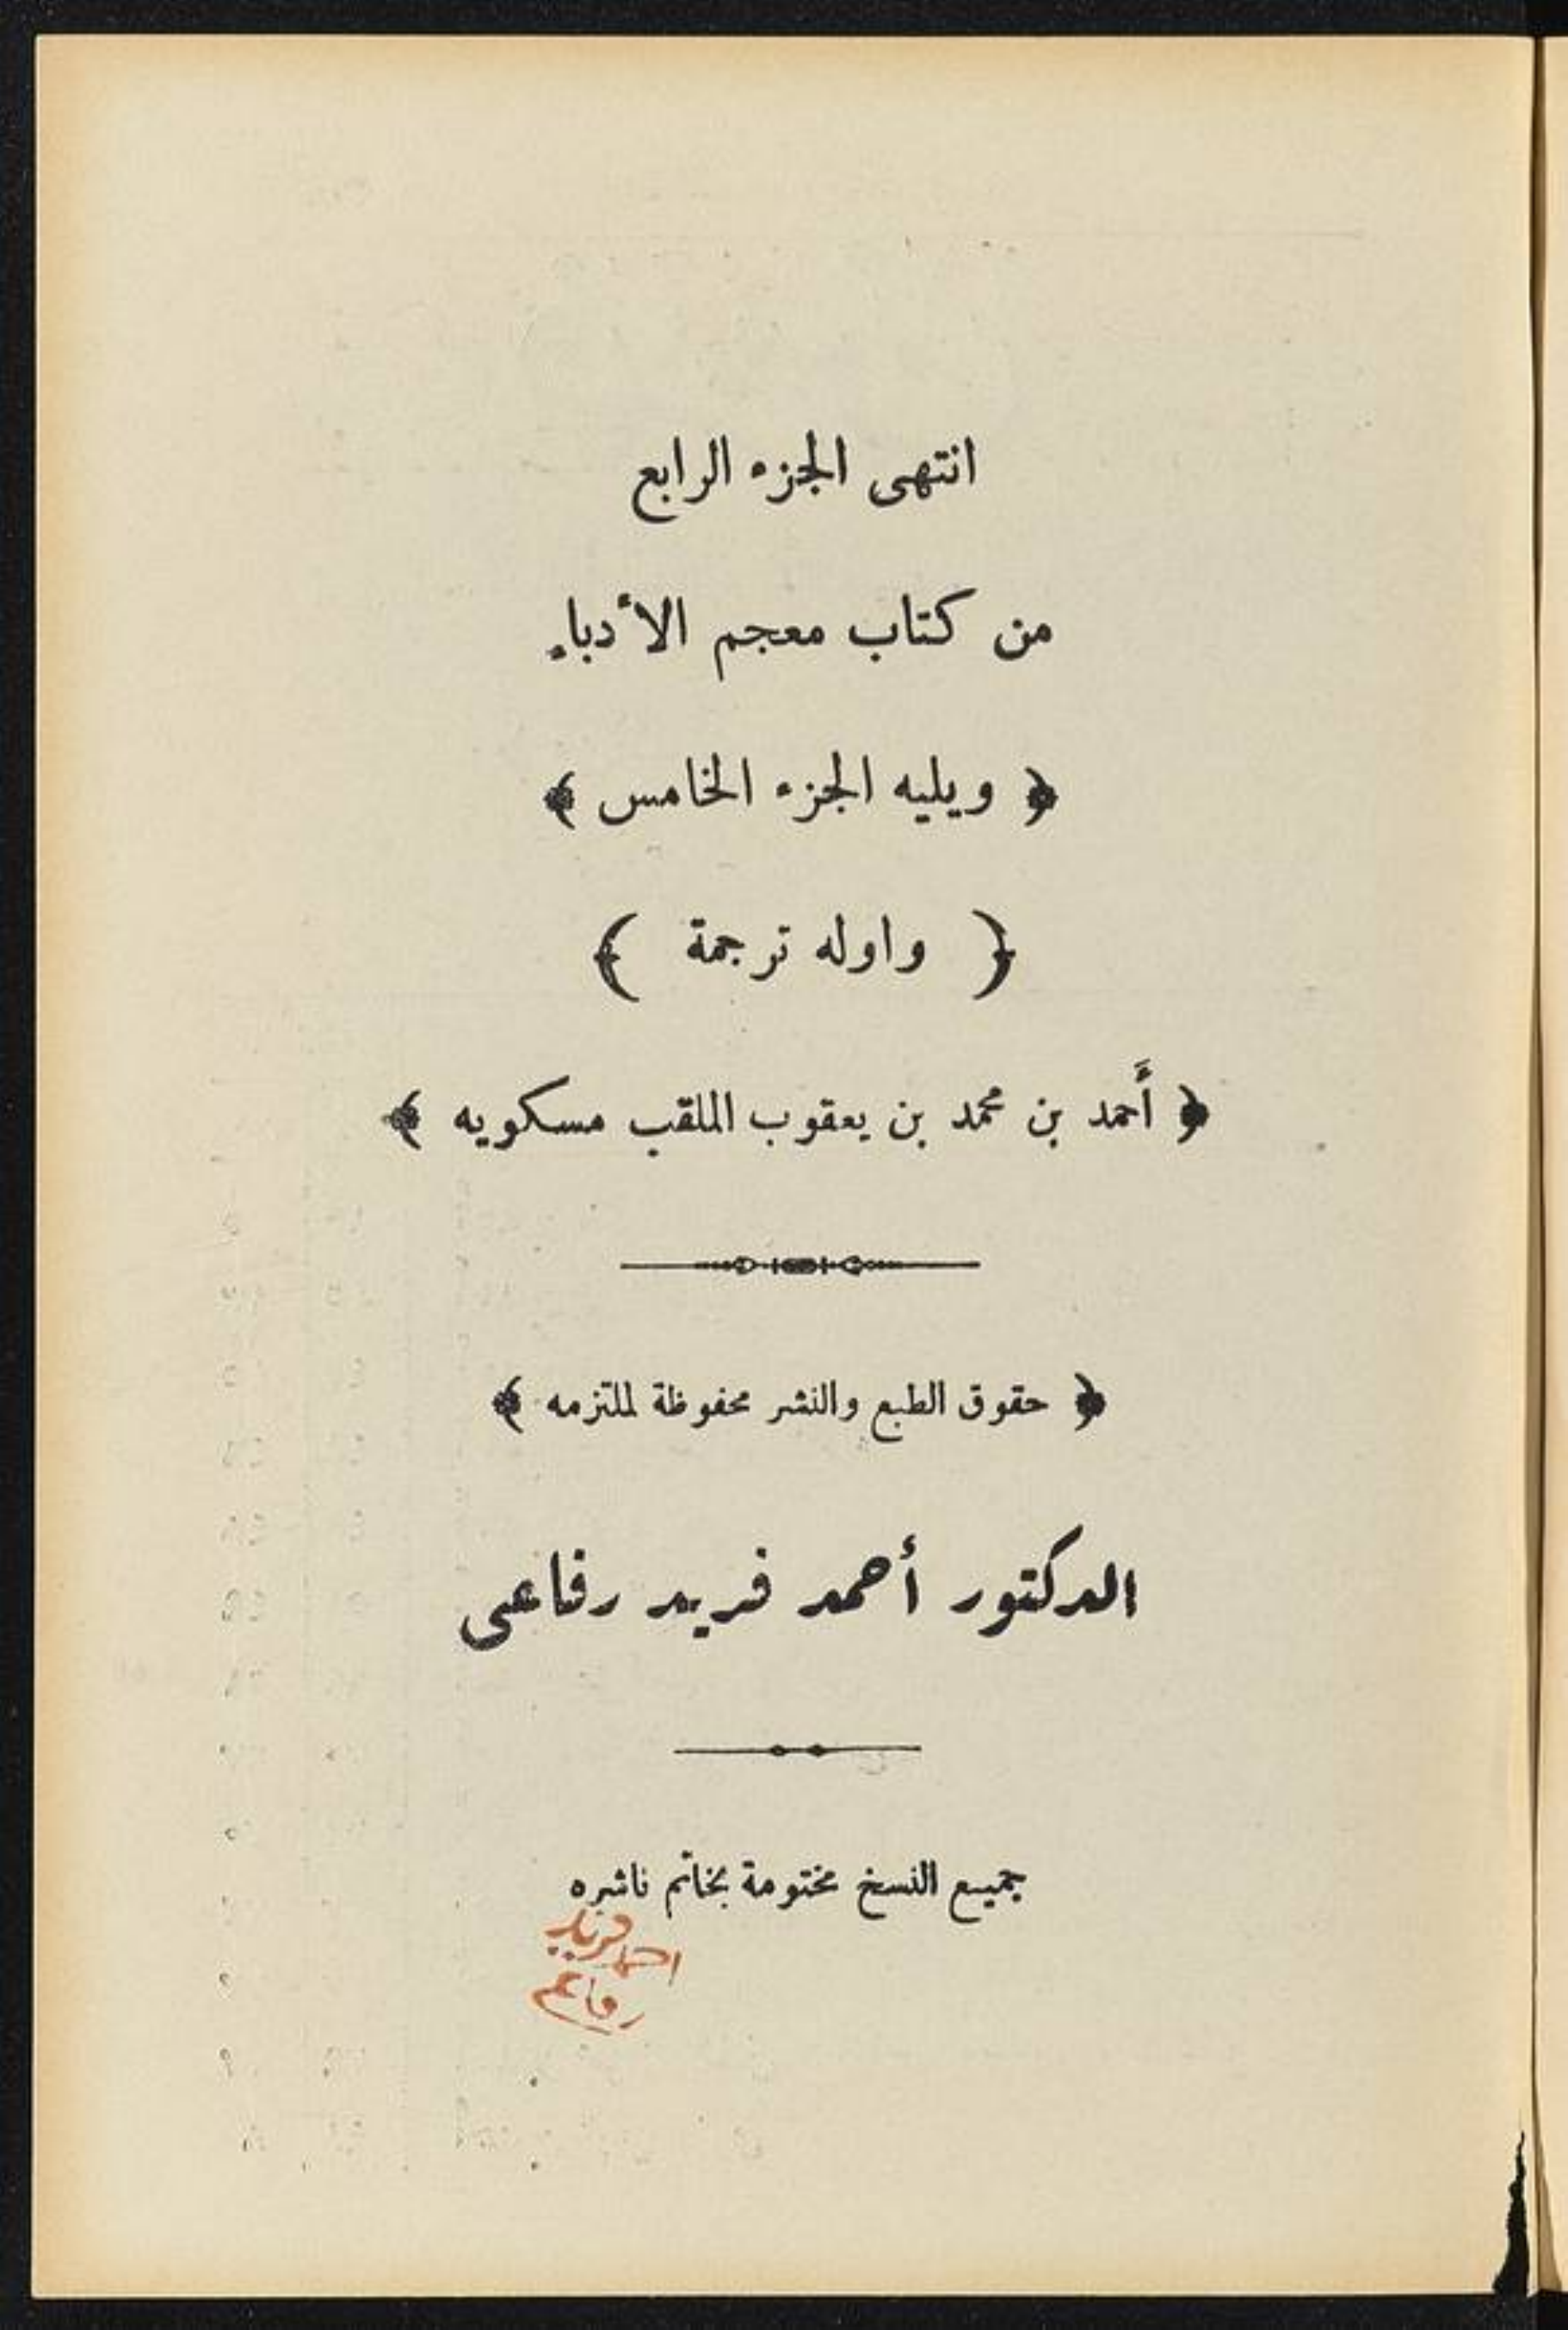 انتهى الجزء الرابع
من كتاب معجم الأدباء
﴿ ويليه الجزء الخامس ﴾
﴿ واوله ترجمة ﴾
﴿ أَحمد بن محمد بن يعقوب الملقب مسكويه ﴾
﴿ حقوق الطبع والنشر محفوظة لملتزمه ﴾
الدكتور أحمد فريد رفاعى
جميع النسخ مختومة بخاتم ناشره
احمد فريد
رفاعى